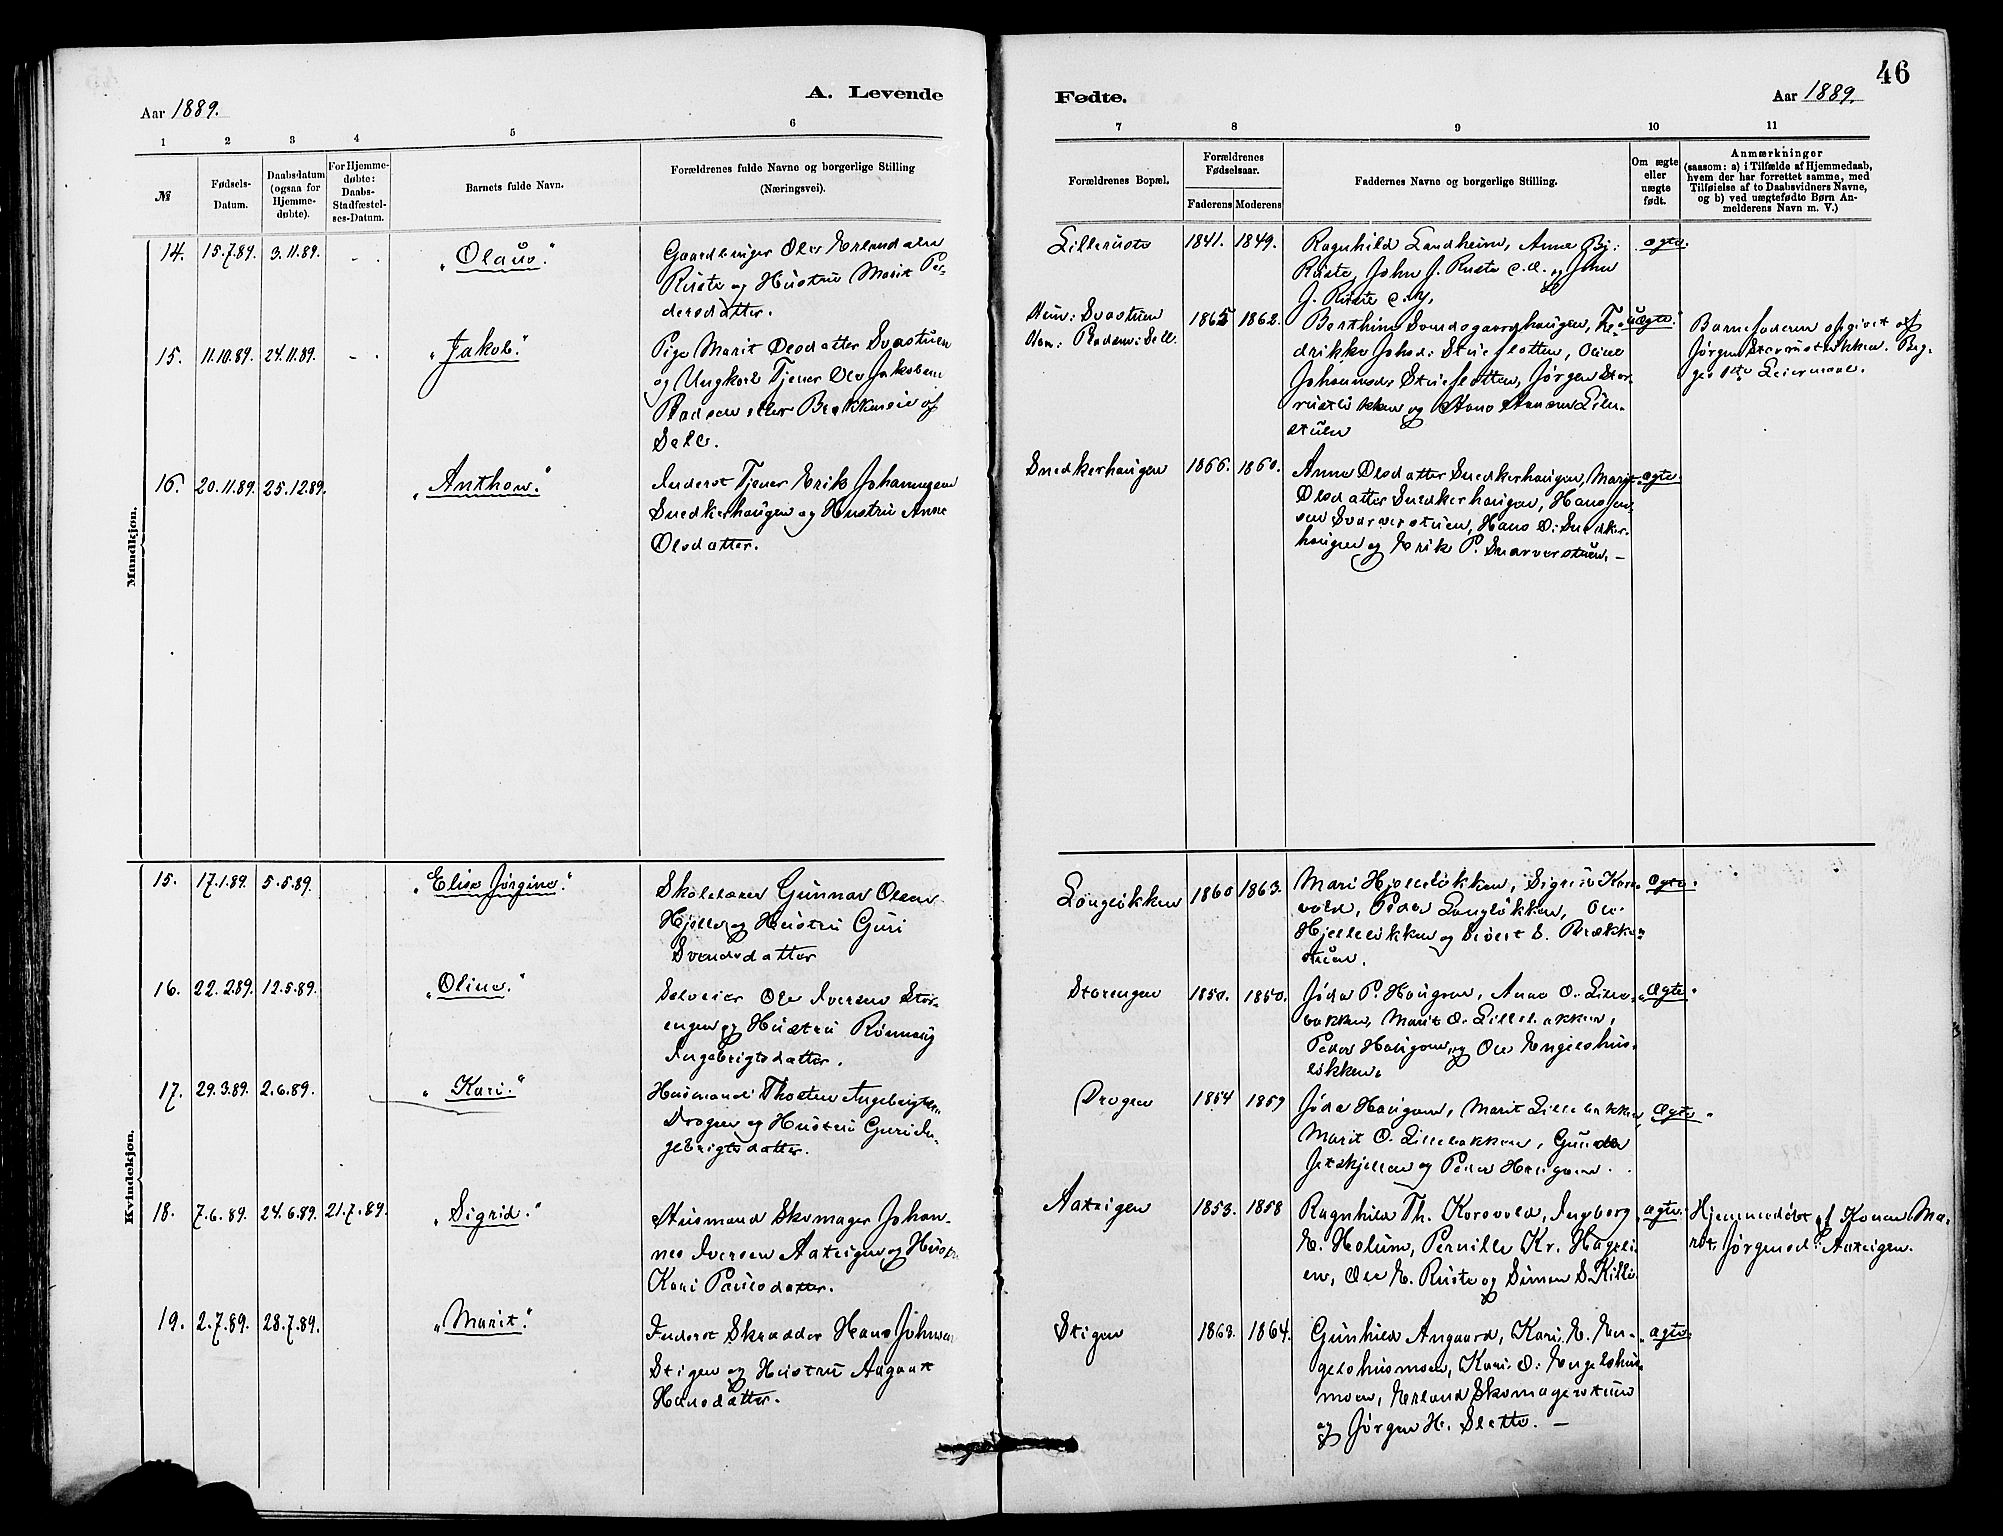 46
A. Levende
Fødte.
Aar 1889.
Aar 1889.
1 2 3 4 5 6
7 8 9 10 11
№
Fødsels-
Datum.
Daabsdatum
(ogsaa for
Hjemme-
døbte).
For Hjemme-
døbte:
Daabs-
Stadfæstel-
ses-Datum.
Barnets fulde Navn.
Forældrenes fulde Navne og borgerlige Stilling
(Næringsvei).
Forældrenes Bopæl.
Forældrenes
Fødselsaar.
Faderens Moderens
Faddernes Navne og borgerlige Stilling.
Om ægte
eller
uægte
født.
Anmærkninger
(saasom: a) i Tilfælde af Hjemmedaab,
hvem der har forrettet samme, med
Tilføielse af to Daabsvidners Navne,
og b) ved uægtefødte Børn An-
melderens Navn m. V.)
Mandkjøn.
14. 15.7.89. 3.11.89. - . "Olaus."
Gaardbruger Ole Erlandsen
Ruste og Hustru Marit Pe-
dersdatter.
Lilleruste 1841. 1849.
Ragnhild Landheim, Anne Bj:
Ruste, John J. Ruste e.æ. og John
J. Ruste e.y.
ægte.
15. 11.10.89. 24.11.89. - . "Jakob."
Pige Marit Olsdatter Svastuen
og Ungkarl Tjener Ole Jakobsen
af
Sell.
Hun: Svastuen
Han: Sell.
1865 1862.
Berthine Svendsgaardhaugen, Fre-
drikke Johsd: Stueflotten, Oline
Johannesdr Stueflotten, Jørgen Stor-
rusteløkken og Hans Hansen Lille-
stuen
"Uægte."
Barnefaderen opgivet af
Jørgen Storrusteløkken. Beg-
ges 1ste Leiermaal.
16. 20.11.89. 25.12.89. "Anthon."
Inderst Tjener Erik Johannesen
Snedkerhaugen og Hustru Anne
Olsdatter.
Snedkerhaugen 1866. 1860.
Anne Olsdatter Snedkerhaugen, Marit
Olsdatter Snedkerhaugen, Hans Jen-
sen Svarverstuen, Hans O: Snedker-
haugen og Erik P. Svarverstuen. -
ægte.
Kvindekjøn.
15. 17.1.89. 5.5.89. "Elise Jørgine."
Skolelærer Gunnar Olsen
Hjelle og Hustru Guri
Svendsdatter
Longløkken 1860 1863.
Mari Hjelleløkken, Sigrid Kors-
vold, Peder Longløkken, Ole
Hjelleløkken og Sivert S. Brække-
stuen.
ægte.
16. 22.2.89. 12.5.89. "Oline."
Selveier Ole Iversen Stor-
engen og Hustru Rönnaug
Ingebrigtsdatter.
Storengen 1850. 1850.
Jøda P. Haugen, Anne O. Lille-
bakken, Marit O. Lillebakken,
Peder Haugen og Ole Engelshus-
løkken.
"ægte."
17. 29.3.89. 2.6.89. "Kari."
Husmand Thosten Ingebrigtsen
Drogen og Hustru Guri In-
gebrigtsdatter.
Drogen 1854 1859
Jøda Haugen, Marit Lillebakken
Marit O. Lillebakken, Gunder
og Peder Haugen.
"ægte."
18. 7.6.89. 24.6.89. 21.7.89. "Sigrid."
Husmand Skomager Johan-
nes Iversen Aateigen og Hustru
Kari Paulsdatter.
Aateigen 1853. 1858
Ragnhild Th. Korsvold, Ingeborg
E. Holum, Pernille Kr. Hageli-
en, Ole E. Ruste og Simen S. Kille.
"ægte."
Hjemmedøbt af Konen Ma-
rit Jørgensd: Aateigen.
19. 2.7.89. 28.7.89. "Marit."
Inderst Skrædder Hans Johnsen
Stigen og Hustru Aagaat
Hansdatter.
Stigen 1863. 1864.
Gunhild Angaard, Kari E. En-
gelshusmoen, Kari O. Engelshus-
moen, Erland Skomagerstuen
og Jørgen H. Slette. -
"ægte."